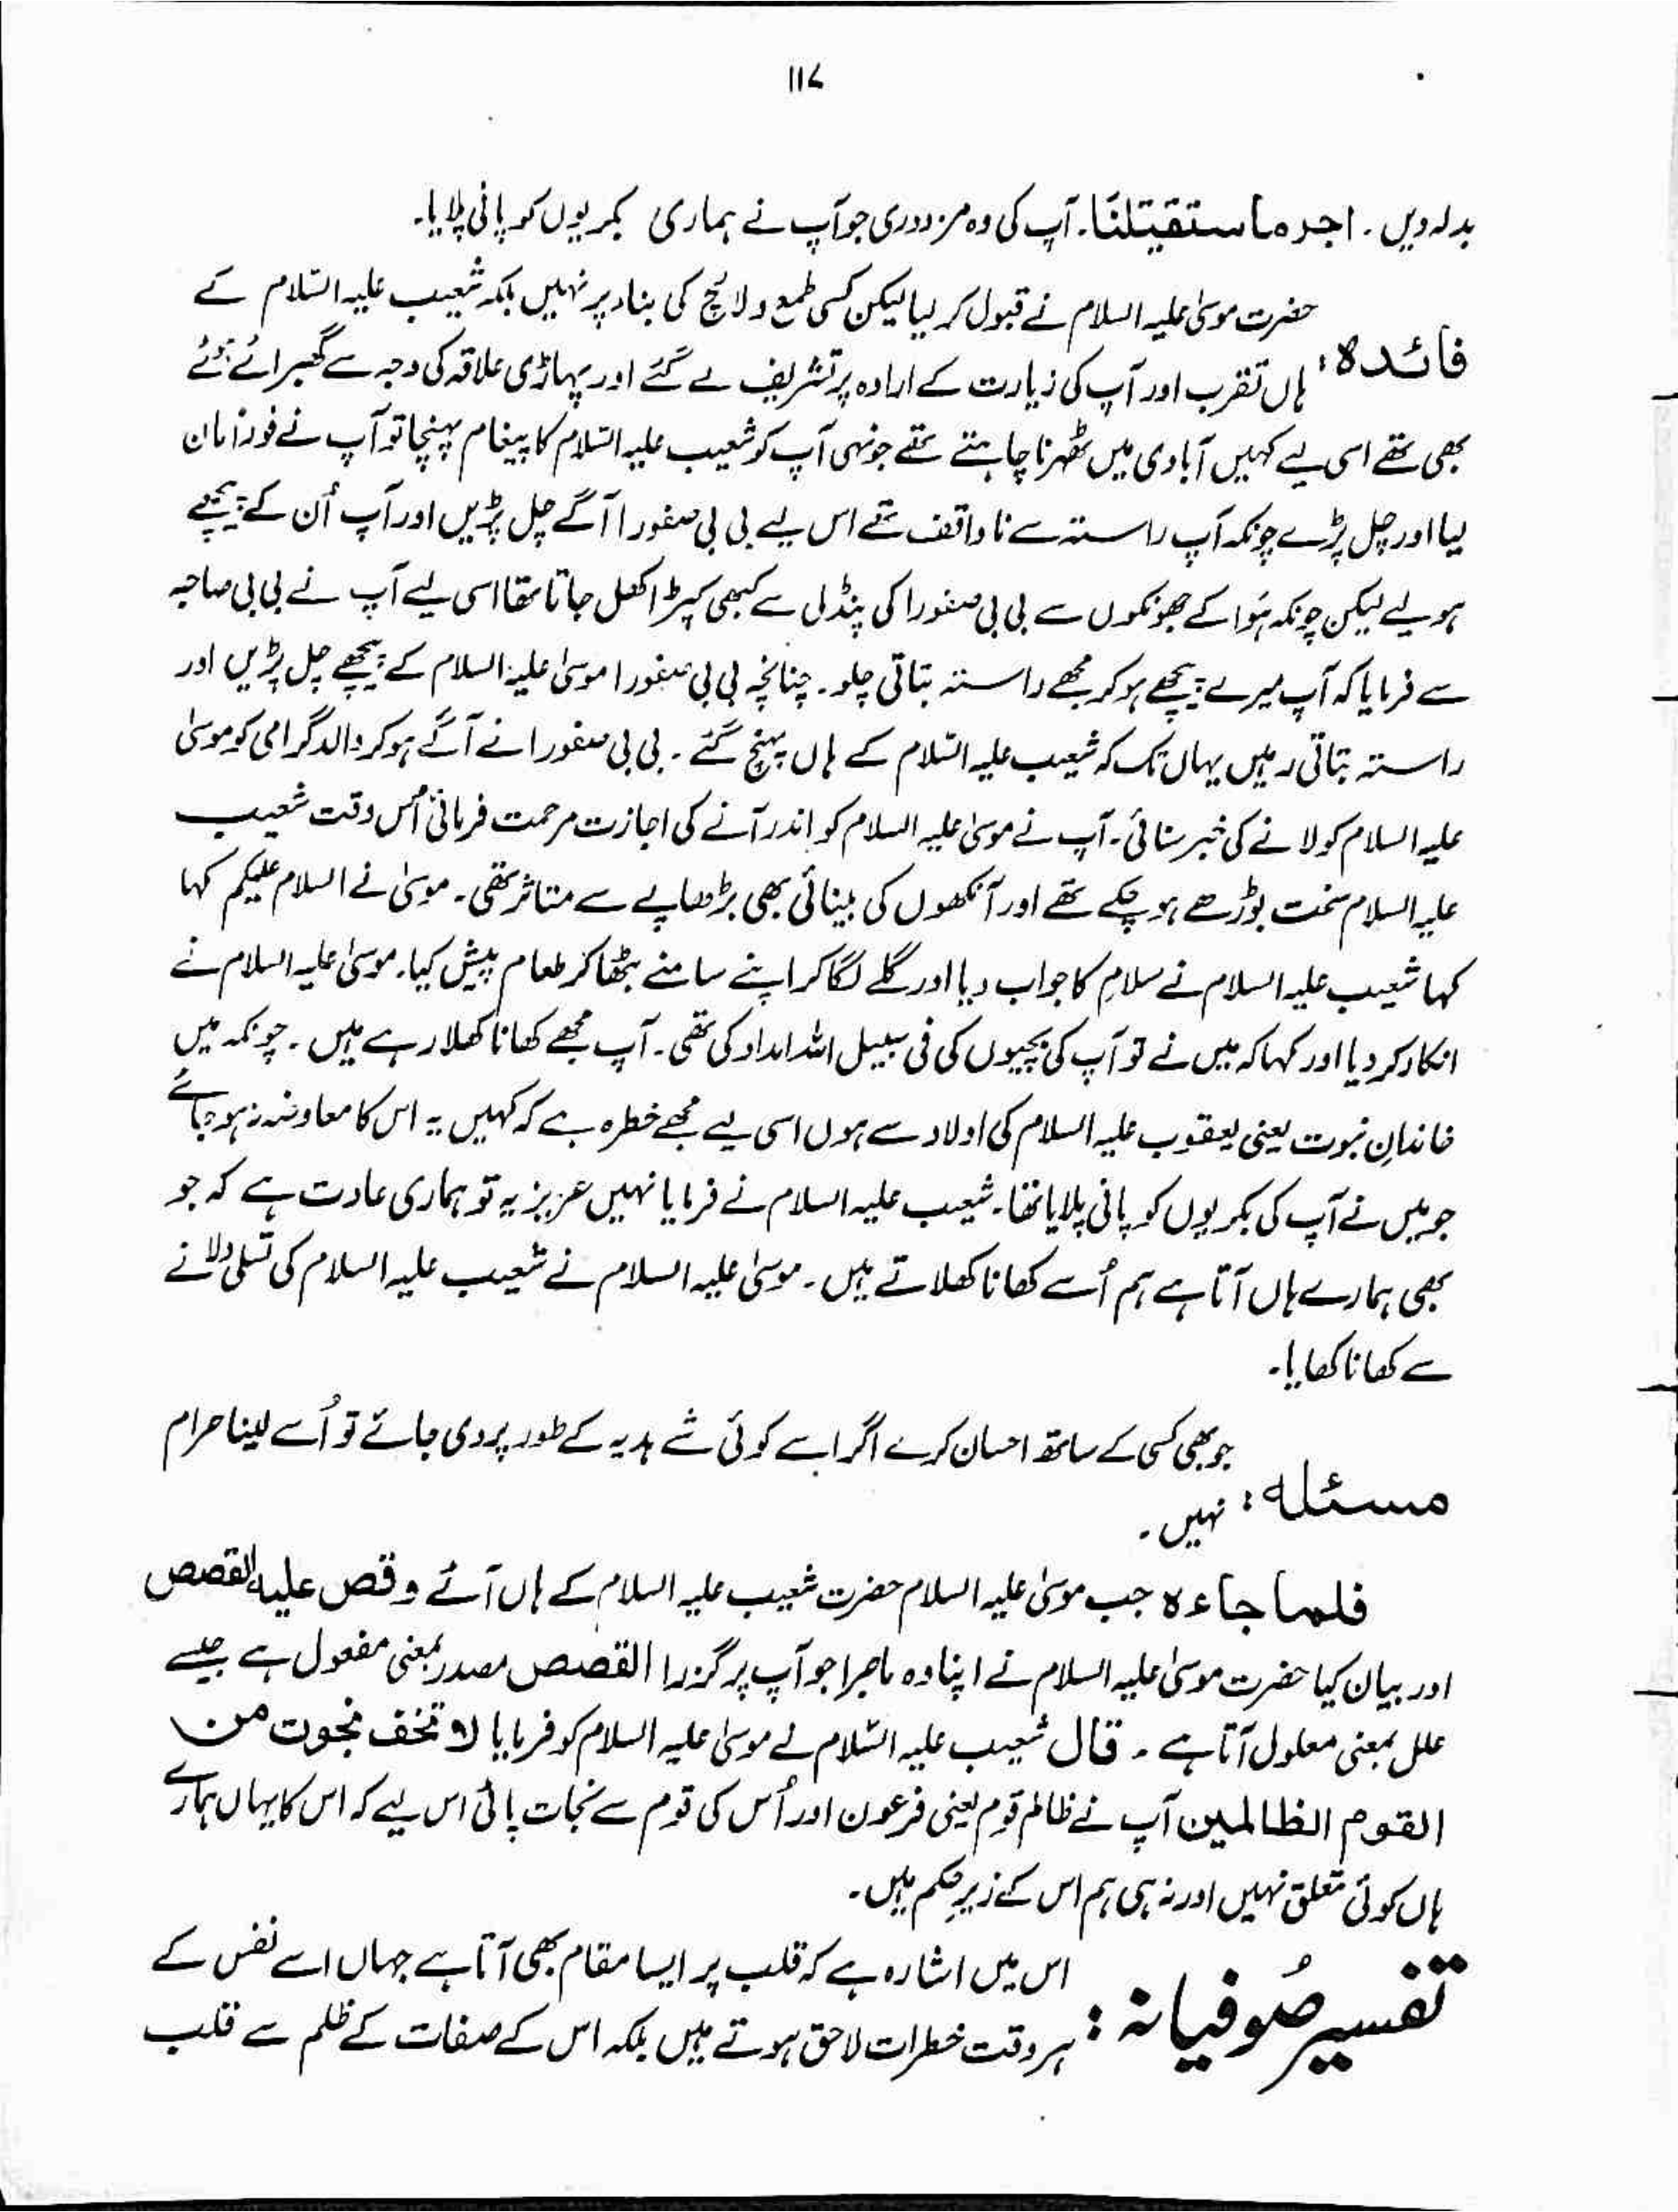 ۱۱۷
بدلہ دیں ۔ اجر ما ستقیتلنا۔ آپ کی وہ مزدوری جو آپ نے ہماری بکریوں کو پانی پلایا۔
حضرت موسیٰ علیہ السلام نے قبول کر لیا لیکن کسی طمع و لالچ کی بناء پر نہیں بلکہ شعیب علیہ السّلام کے
فائدہ : ہاں تقرب اور آپ کی زیارت کے ارادہ پر تشریف لے گئے اور پہاڑی علاقہ کی وجہ سے گھبرائے ہوئے
بھی تھے اسی لیے کہیں آبادی میں ٹھہرنا چاہتے تھے جونہی آپ کو شعیب علیہ السّلام کا پیغام پہنچا تو آپ نے فورًا مان
لیا اور چل پڑے چونکہ آپ راستہ سے ناواقف تھے اس لیے بی بی صفورا آگے چل پڑیں اور آپ اُن کے پیچھے
ہو لیے لیکن چونکہ ہَوا کے جھونکوں سے بی بی صفورا کی پنڈلی سے کبھی کپڑا کھل جاتا تھا اسی لیے آپ نے بی بی صاحبہ
سے فرمایا کہ آپ میرے پیچھے ہو کر مجھے راستہ بتاتی چلو ۔ چنانچہ بی بی صفورا موسیٰ علیہ السلام کے پیچھے چل پڑیں اور
راستہ بتاتی رہیں یہاں تک کہ شعیب علیہ السّلام کے ہاں پہنچ گئے ۔ بی بی صفورا نے آگے ہو کر والد گرامی کو موسیٰ
علیہ السلام کو لانے کی خبر سنائی ۔ آپ نے موسیٰ علیہ السلام کو اندر آنے کی اجازت مرحمت فرمائی اُس وقت شعیب
علیہ السلام سخت بوڑھے ہو چکے تھے اور آنکھوں کی بینائی بھی بڑھاپے سے متاثر تھی ۔ موسیٰ نے السلام علیکم کہا
کہا شعیب علیہ السلام نے سلام کا جواب دیا اور گلے لگا کر اپنے سامنے بٹھا کر طعام پیش کیا۔ موسیٰ علیہ السلام نے
انکار کر دیا اور کہا کہ میں نے تو آپ کی بچیوں کی فی سبیل اللہ امداد کی تھی ۔ آپ مجھے کھانا کھلا رہے ہیں ۔ چونکہ میں
خاندانِ نبوت یعنی یعقوب علیہ السلام کی اولاد سے ہوں اسی لیے مجھے خطرہ ہے کہ کہیں یہ اس کا معاوضہ نہ ہو جائے
جو میں نے آپ کی بکریوں کو پانی پلایا تھا۔ شعیب علیہ السلام نے فرمایا نہیں عزیز یہ تو ہماری عادت ہے کہ جو
بھی ہمارے ہاں آتا ہے ہم اُسے کھانا کھلاتے ہیں ۔ موسیٰ علیہ السلام نے شعیب علیہ السلام کی تسلی دلانے
سے کھانا کھایا ۔
جو بھی کسی کے ساتھ احسان کرے اگر اسے کوئی شے ہدیہ کے طور پر دی جائے تو اُسے لینا حرام
مسئلہ : نہیں ۔
فلما جاءہ جب موسیٰ علیہ السلام حضرت شعیب علیہ السلام کے ہاں آئے وقص علیہ القصص
اور بیان کیا حضرت موسیٰ علیہ السلام نے اپنا وہ ماجرا جو آپ پر گزرا القصص مصدر بمعنی مفعول ہے جیسے
علل بمعنی معلول آتا ہے ۔ قال شعیب علیہ السّلام نے موسیٰ علیہ السلام کو فرمایا لا تخف نجوت من
القوم الظالمین آپ نے ظالم قوم یعنی فرعون اور اُس کی قوم سے نجات پائی اس لیے کہ اس کا یہاں ہمارے
ہاں کوئی تعلق نہیں اور نہ ہی ہم اس کے زیرِ حکم ہیں ۔
اس میں اشارہ ہے کہ قلب پر ایسا مقام بھی آتا ہے جہاں اسے نفس کے
تفسیر صُوفیانہ : ہر وقت خطرات لاحق ہوتے ہیں بلکہ اس کے صفات کے ظلم سے قلب